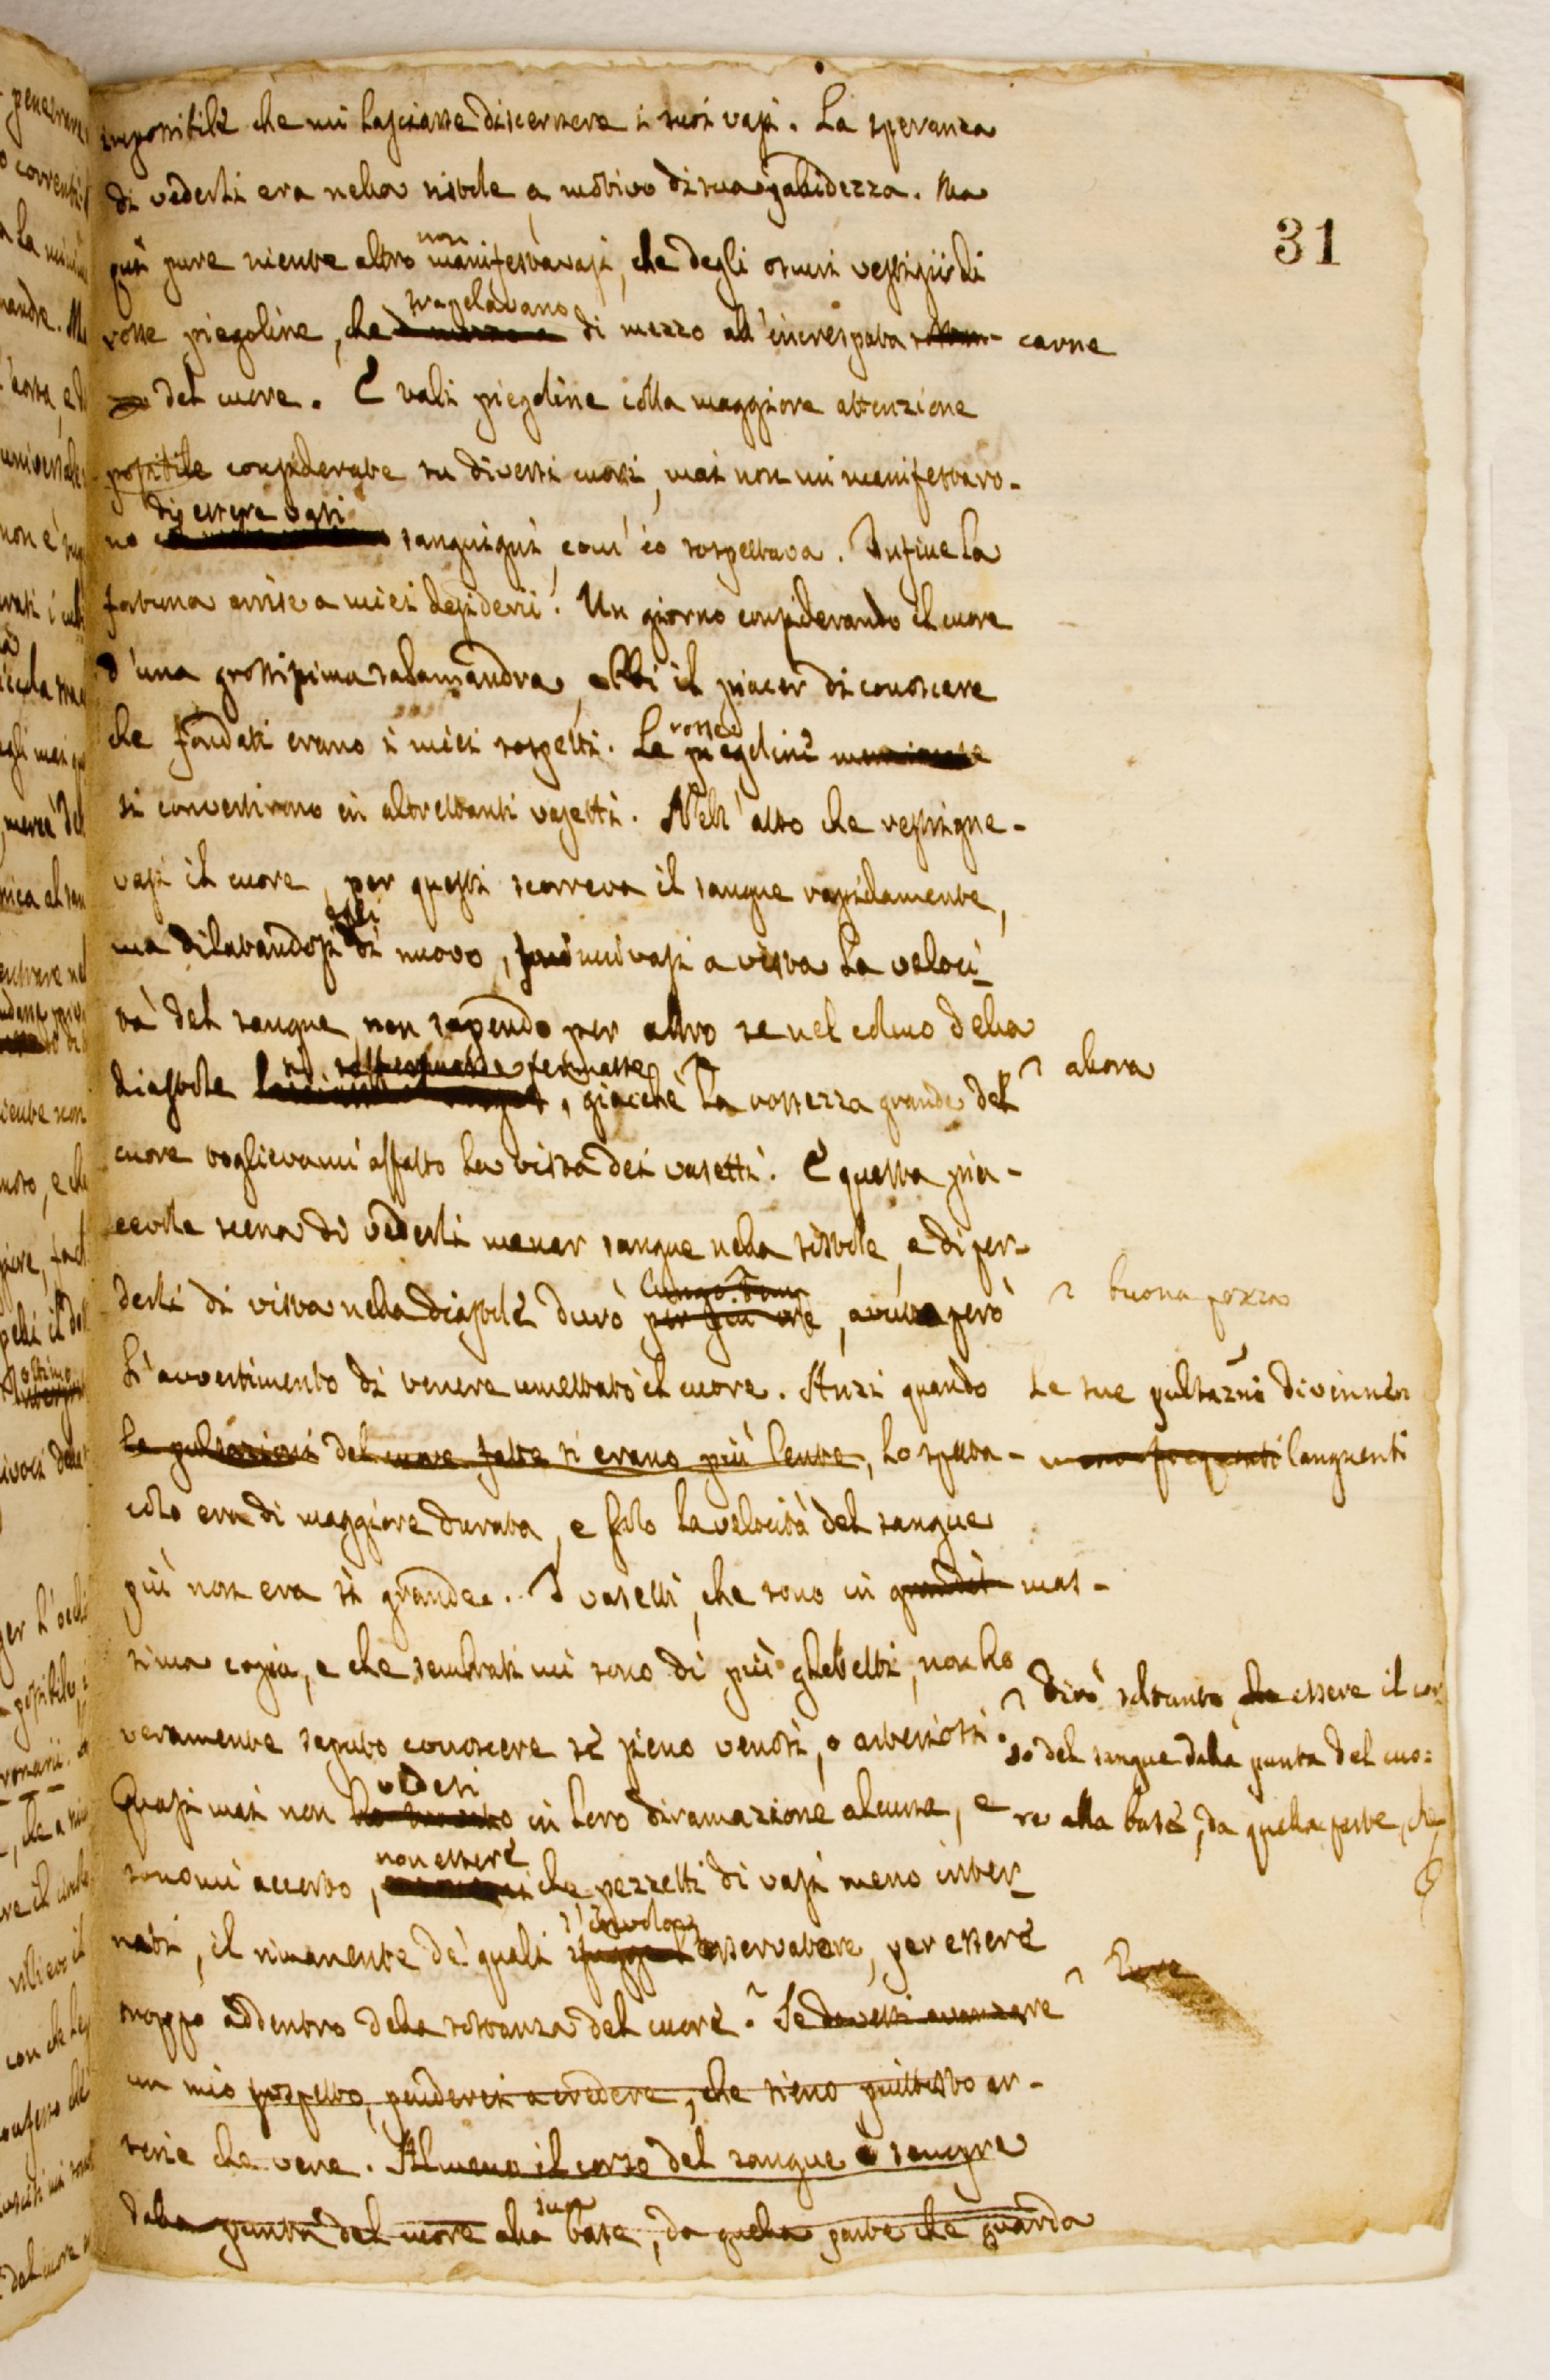 31
impossibile che mi lasciasse discernere i suoi vasi. La speranza
di vederli era nella sistole a motivo di sua pallidezza. Ma
qui pure niente altro non manifestavasi, che degli oscuri vestigii di
rosse piegoline, che trapelavano di mezzo all'increspata carne
del cuore. E tali piegoline colla maggiore attenzione
possibile considerate su diversi cuori, mai non mi manifestaro-
no di essere vasi sanguigni, com'io sospettava. Infine la
fortuna arrise a miei desiderii. Un giorno considerando il cuore
d'una grossissima salamandra, ebbi il piacer di conoscere
che fondati erano i miei sospetti. Le rosse piegoline
si convertirono in altrettanti vasetti. Nell'atto che restrigne-
vasi il cuore, per questi scorreva il sangue rapidamente,
ma dilatandosi egli di nuovo, minuivasi a vista la veloci-
tà del sangue, non sapendo per altro se nel colmo della
diastole si fermasse, giacchè allora la rossezza grande del
cuore toglievami affatto la vista dei vasetti. E questa pia-
cevole scena di vederli menar sangue nella sistole, e di per-
derli di vista nella diastole durò buona pezza, avuto però
l'avvertimento di tenere umettato il cuore. Anzi quando le sue pulsazni divinner
le pulsazioni del cuore fatte si erano più lente, lo spetta- meno frequenti languenti
colo era di maggiore durata, e solo la velocità del sangue
più non era sì grande. I vaselli, che sono in grandis mas-
sima copia, e che sembrati mi sono di più ghebetti, non ho
veramente saputo conoscere se sieno venosi, o arteriosi. dirò soltanto che essere il cor
so del sangue dalla punta del cuo=
Quasi mai non vedesi in loro diramazione alcuna, e re alla base, da quella parte, che
sonomi accorto, non essere che pezzetti di vasi meno inter-
nati, il rimanente de' quali s'invola osservatore, per essere
troppo addentro della sostanza del cuore. Se dovessi avanzare
un mio sospetto, penderei a credere, che sieno piuttosto ar-
terie che vene. Almeno il corso del sangue è sempre
dalla punta del cuore alla sua base, da quella parte che guarda